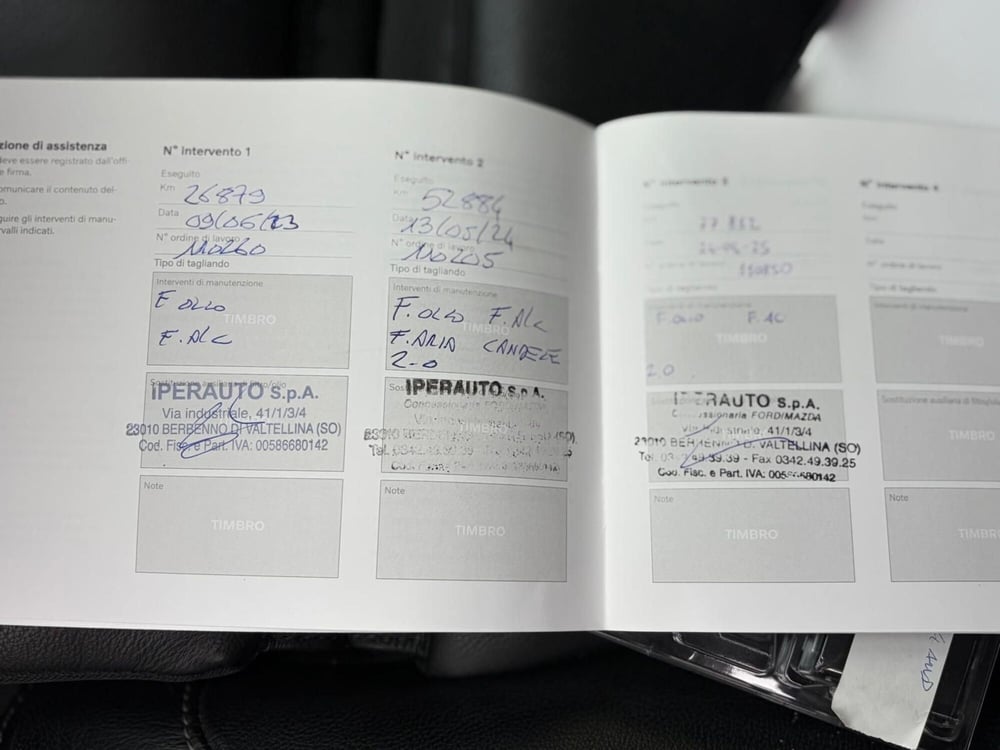 zione di assistenza
deve essere registrato dall'offi-
e firma.
omunicare il contenuto del-
o.
guire gli interventi di manu-
rvalli indicati.
N° Intervento 1
Eseguito
Km 26879
Data 09/05/23
N° ordine di lavoro
110260
Tipo di tagliando
Interventi di manutenzione
F OLIO
TIMBRO
F. A/C
IPERAUTO S.p.A.
Via industriale, 41/1/3/4
23010 BERBENNO DI VALTELLINA (SO)
Cod. Fisc. e Part. IVA: 00586680142
Note
TIMBRO
N° Intervento 2
Eseguito
Km 52884
Data 13/05/24
N° ordine di lavoro
110205
Tipo di tagliando
Interventi di manutenzione
F. OLIO F. A/C
TIMBRO
F. ARIA CANDELE
2-0
IPERAUTO S.p.A.
Concessionaria FORD/MAZDA
TIMBRO
Note
TIMBRO
N° Intervento 3
Eseguito
77 862
Tipo di tagliando
F. OLIO F. AC
TIMBRO
2.0
IPERAUTO S.p.A.
Concessionaria FORD/MAZDA
Via industriale, 41/1/3/4
23010 BERBENNO DI VALTELLINA (SO)
Tel. 0342.49.39.39 - Fax 0342.49.39.25
Cod. Fisc. e Part. IVA: 00586680142
Note
TIMBRO
N° Intervento 4
Data
N° ordine di lavoro
Tipo di tagliando
Interventi di manutenzione
TIMBRO
Sostituzione ausiliaria di filtro/olio
TIMBRO
Note
TIMBRO